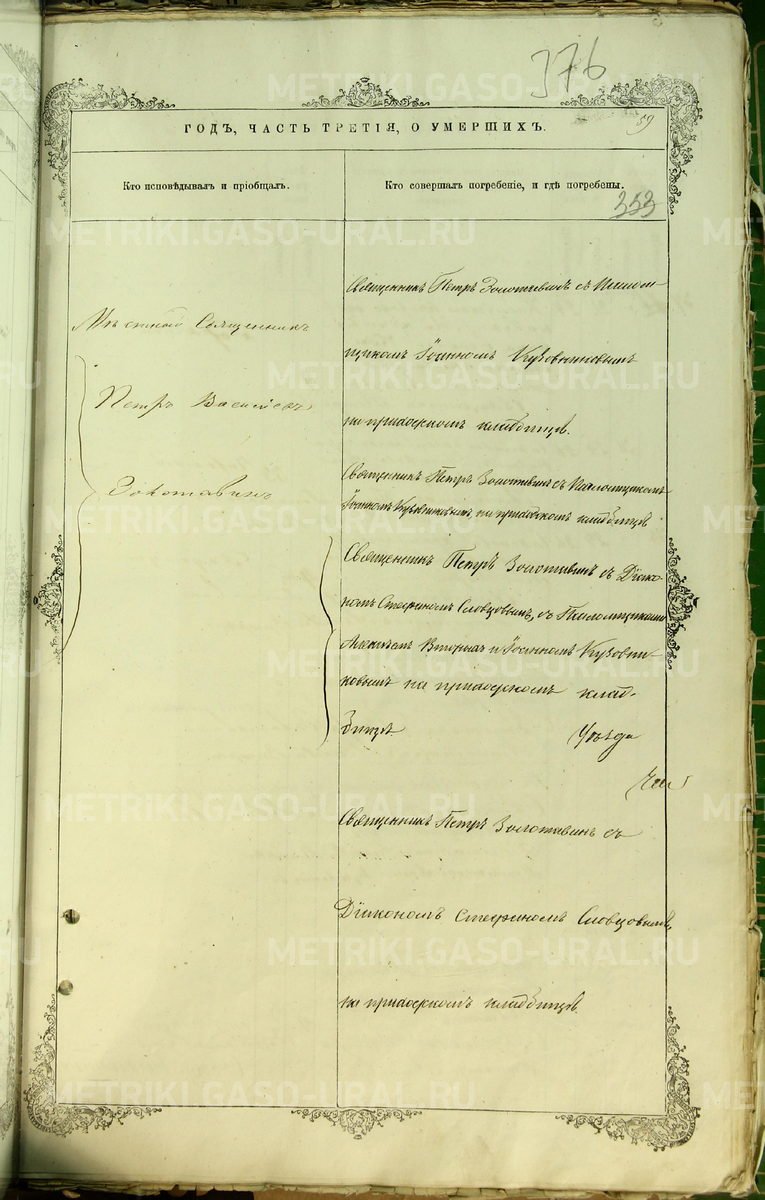 376
59
ГОДЪ, ЧАСТЬ ТРЕТІЯ, О УМЕРШИХЪ.
Кто исповѣдывалъ и пріобщалъ.
Кто совершалъ погребеніе, и гдѣ погребены.
353
Мѣстной Священникъ
Петръ Василіевъ
Золотавинъ
Священникъ Петръ Золотавинъ съ Псаломщикомъ
Іоанномъ Кузовниковымъ
на приходскомъ кладбищѣ.
Священникъ Петръ Золотавинъ съ Псаломщикомъ
Іоанномъ Кузовниковымъ, на приходскомъ кладбищѣ
Священникъ Петръ Золотавинъ съ Діако-
номъ Стефаномъ Словцовымъ, съ Псаломщиками
и Іоанномъ Кузовни-
ковымъ на приходскомъ клад-
бищѣ. Уѣзда
Священникъ Петръ Золотавинъ съ
Діакономъ Стефаномъ Словцовымъ,
на приходскомъ кладбищѣ.
METRIKI.GASO-URAL.RU